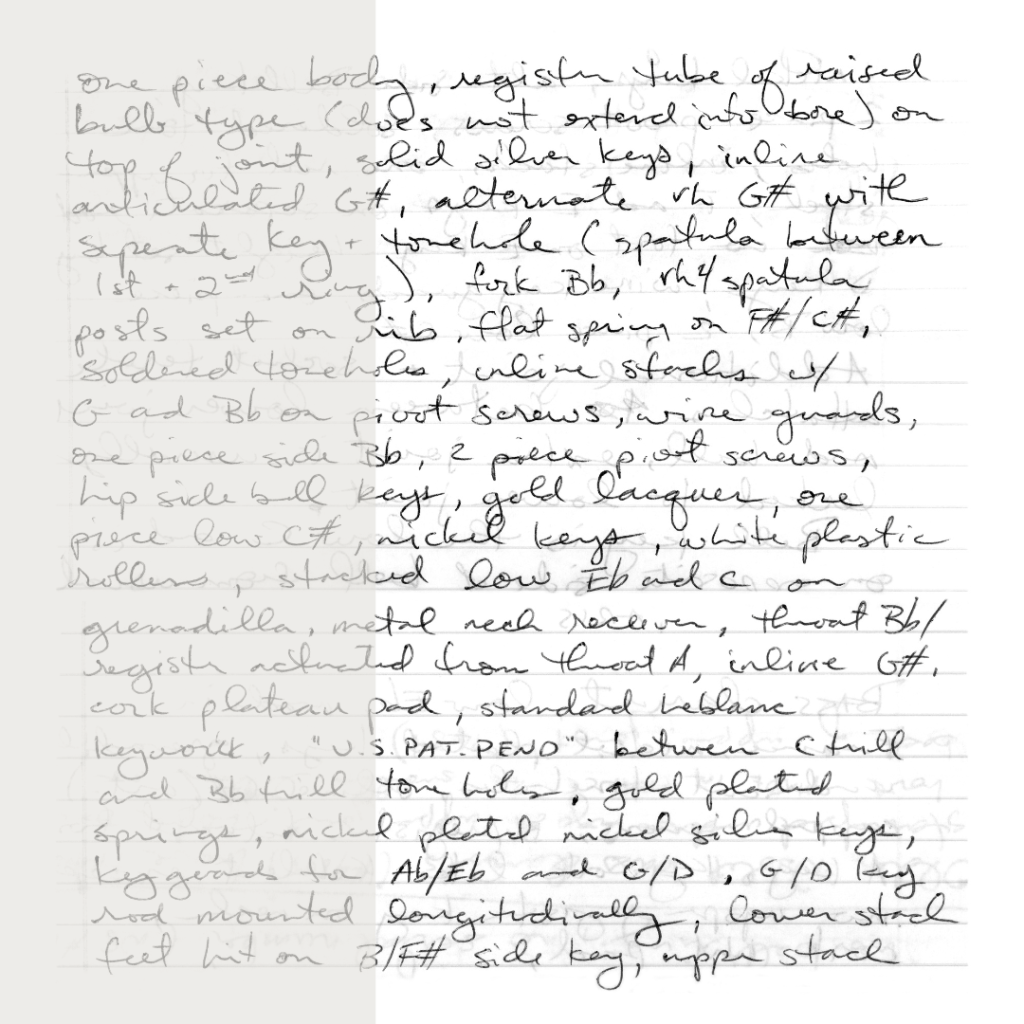 one piece body, register tube of raised
bulb type (does not extend into bore) on
top of joint, solid silver keys, inline
articulated G#, alternate rh G# with
seperate key + tonehole (spatula between
1st + 2nd ring), fork Bb, rh4 spatula
posts set on rib, flat spring on F#/C#,
soldered toneholes, inline stacks w/
G ad Bb on pivot screws, wire guards,
one piece side Bb, 2 piece pivot screws,
hip side bell keys, gold lacquer, one
piece low C#, nickel keys, white plastic
rollers, stacked low Eb ad C on
grenadilla, metal neck receiver, throat Bb/
register actuated from throat A, inline G#.
cork plateau pad, standard Leblanc
keywork, "U.S. PAT. PEND" between C trill
and Bb trill tone holes, gold plated
springs, nickel platd nickel silver keys,
keyguards for Ab/Eb and G/D, G/D key
rod mounted longitudinally, lower stack
feet hit on B/F# side key, upper stack